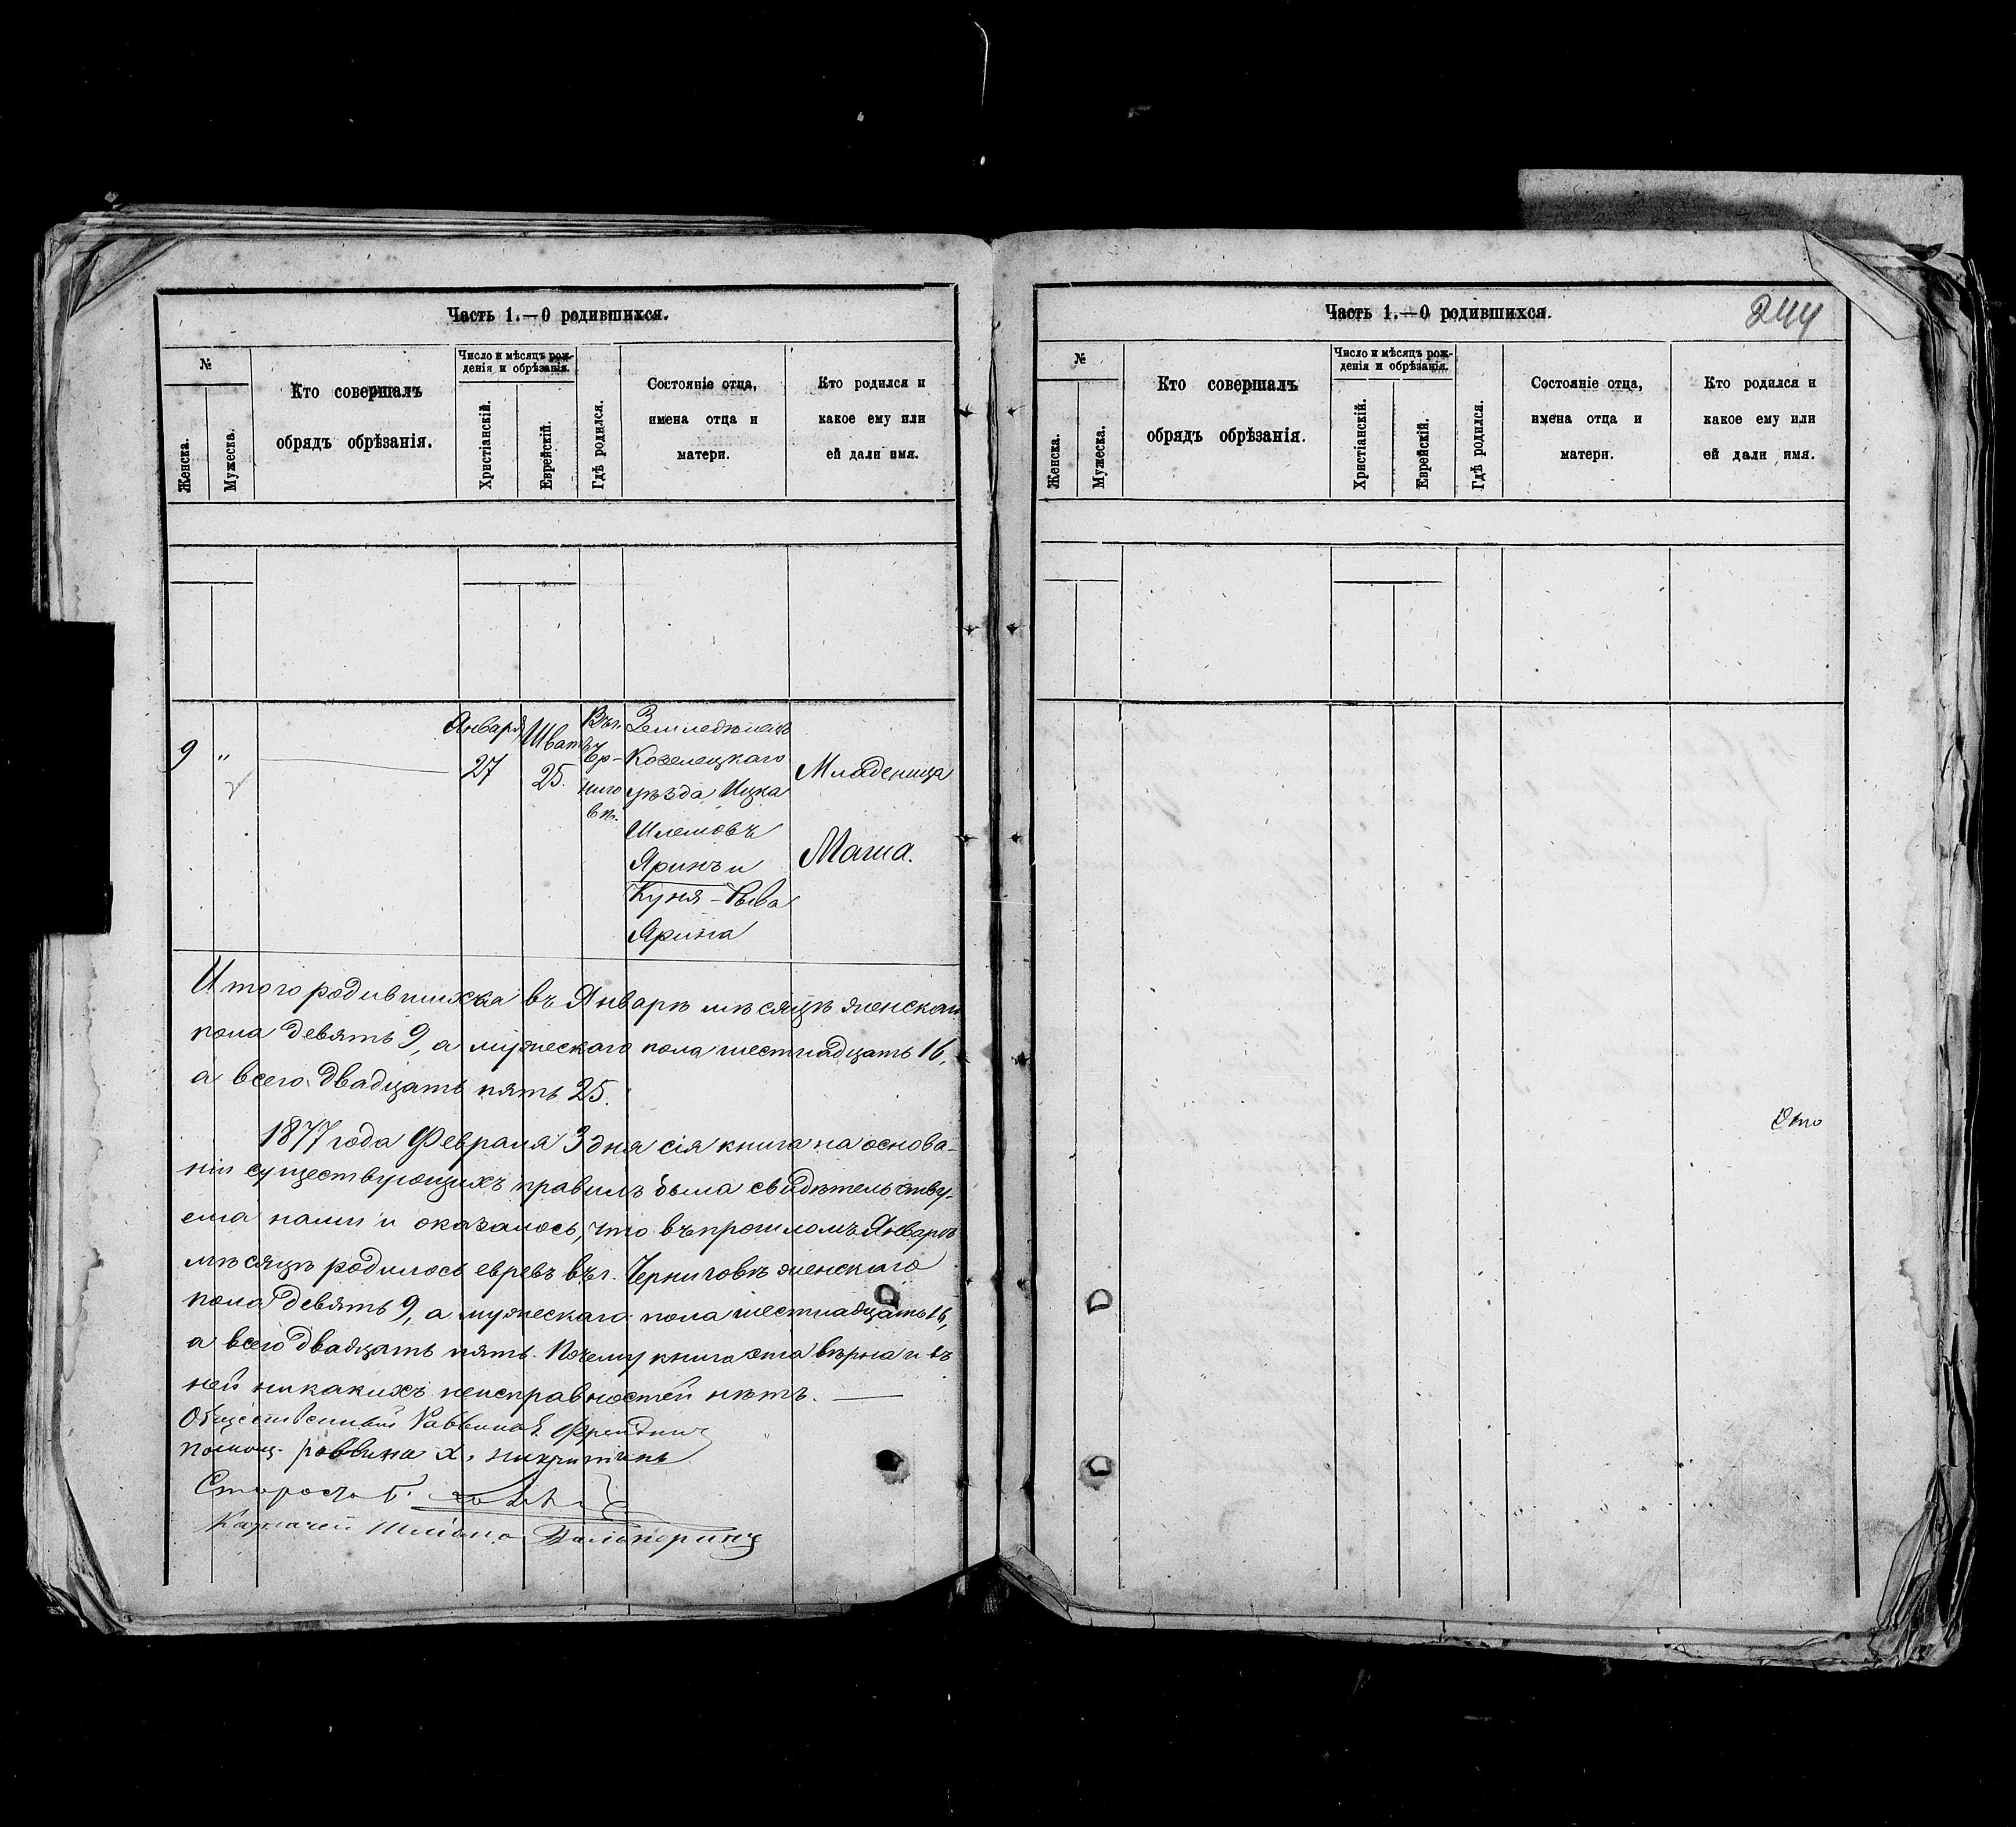 Часть 1.—О родившихся.
№
Женска.
Мужеска.
Кто совершалъ
обрядъ обрѣзанія.
Число и мѣсяцъ рож-
денія и обрѣзанія.
Христіанскій.
Еврейскій.
Гдѣ родился.
Состояніе отца,
имена отца и
матери.
Кто родился и
какое ему или
ей дали имя.
9
"
Января
27
Шватъ
25.
Въ г.
Чер-
ниго
вѣ.
Земледѣлецъ
Козелецкаго
уѣзда Ицка
Шлемовъ
Яринъ и
Куня-Рыва
Ярина
Младеница
Маша.
Итого родившихся въ Январѣ мѣсяцѣ женскаго
пола девять 9, а мужескаго пола шестнадцать 16,
а всего двадцать пять 25.
1877 года Февраля 3 дня сія книга на основа-
ніи существующихъ правилъ была свидѣтельству-
ема нами и оказалось, что въ прошломъ Январѣ
мѣсяцѣ родилось евреевъ въ г. Черниговѣ женскаго
пола девять 9, а мужескаго пола шестнадцать 16,
а всего двадцать пять. Почему книга эта вѣрна и въ
ней никакихъ неисправностей нѣтъ.
Общественный Раввинъ
Помощ. раввина Х.
Староста
Казначей Гальперинъ
Часть 1.—О родившихся.
244
№
Женска.
Мужеска.
Кто совершалъ
обрядъ обрѣзанія.
Число и мѣсяцъ рож-
денія и обрѣзанія.
Христіанскій.
Еврейскій.
Гдѣ родился.
Состояніе отца,
имена отца и
матери.
Кто родился и
какое ему или
ей дали имя.